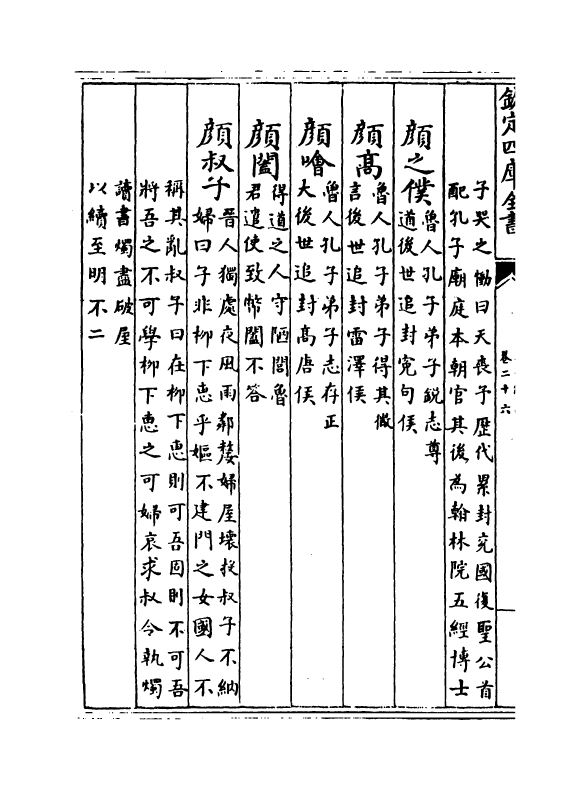 欽定四庫全書
卷二十六
子哭之慟曰天喪予歷代累封兖國復聖公首
配孔子廟庭本朝官其後為翰林院五經博士
顔之僕魯人孔子弟子鋭志尊
道後世追封寃句侯
顔高魯人孔子弟子得其微
言後世追封雷澤侯
顔噲魯人孔子弟子志存正
大後世追封高唐侯
顔闔得道之人守陋閭魯
君遣使致幣闔不答
顔叔子晉人獨處夜風雨鄰嫠婦屋壞投叔子不納
婦曰子非柳下惠乎嫗不建門之女國人不
稱其亂叔子曰在柳下惠則可吾固則不可吾
將吾之不可學柳下惠之可婦哀求叔令執燭
讀書燭盡破屋
以續至明不二